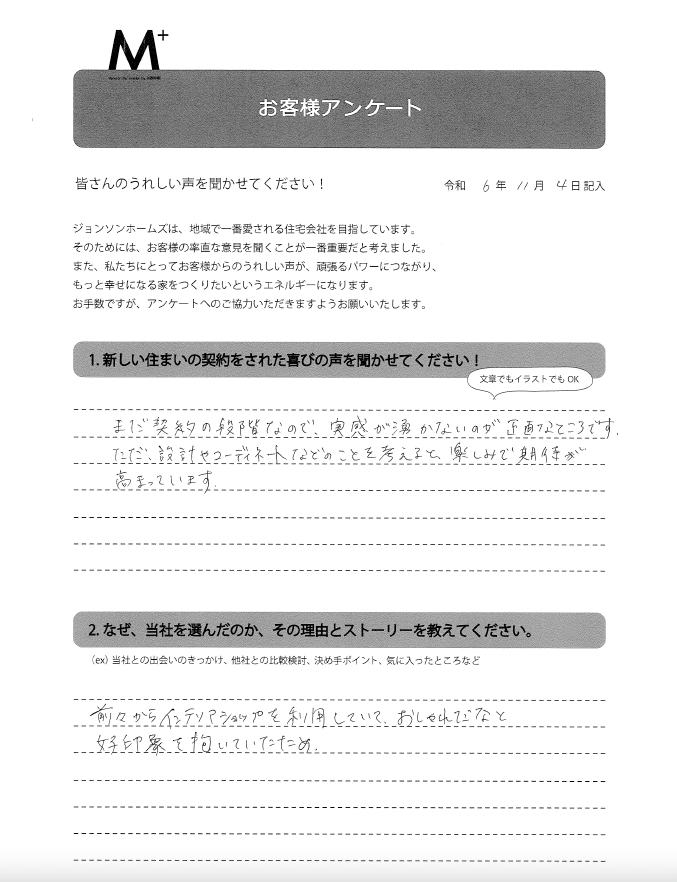 M+
お客様アンケート
皆さんのうれしい声を聞かせてください！
令和 6年 11月 4日記入
ジョンソンホームズは、地域で一番愛される住宅会社を目指しています。
そのためには、お客様の率直な意見を聞くことが一番重要だと考えました。
また、私たちにとってお客様からのうれしい声が、頑張るパワーにつながり、
もっと幸せになる家をつくりたいというエネルギーになります。
お手数ですが、アンケートへのご協力いただきますようお願いいたします。
1. 新しい住まいの契約をされた喜びの声を聞かせてください！
文章でもイラストでも OK
まだ契約の段階なので、実感が湧かないのが正直なところです。
ただ、設計やコーディネートなどのことを考えると、楽しみで期待が
高まっています。
2. なぜ、当社を選んだのか、その理由とストーリーを教えてください。
（ex）当社との出会いのきっかけ、他社との比較検討、決め手ポイント、気に入ったところなど
前々からインテリアショップを利用していて、おしゃれだなと
好印象を抱いていたため。